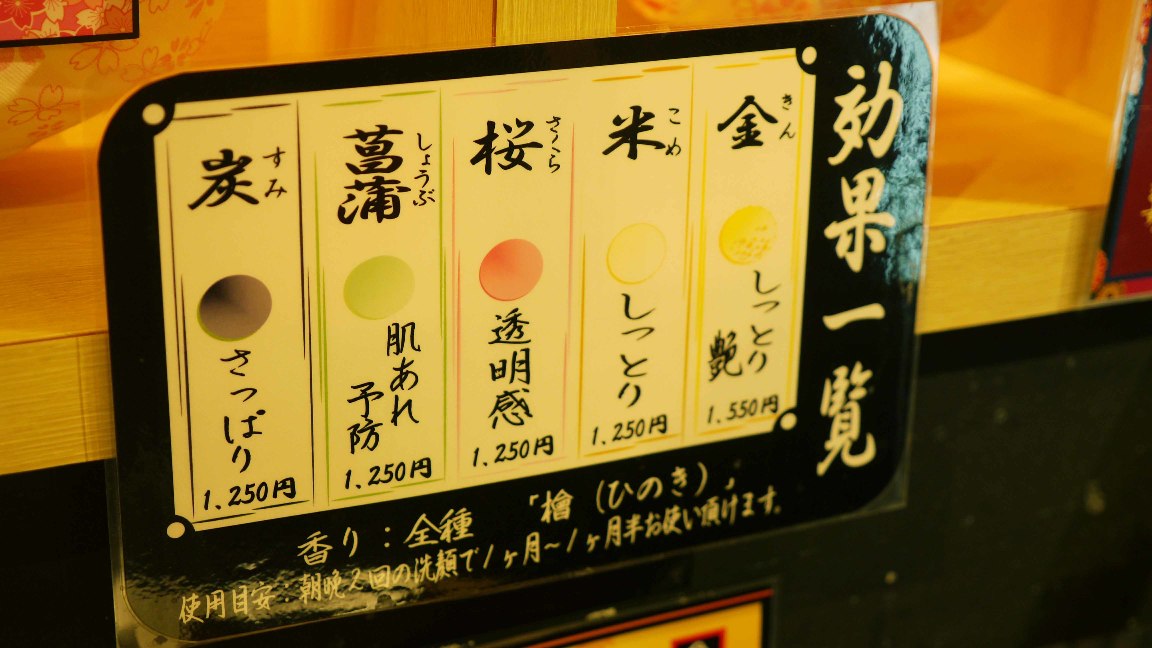 効果一覧
金
きん
しっとり
艶
1,550円
米
こめ
しっとり
1,250円
桜
さくら
透明感
1,250円
菖蒲
しょうぶ
肌あれ
予防
1,250円
炭
すみ
さっぱり
1,250円
香り：全種 「檜（ひのき）」
使用目安：朝晩2回の洗顔で1ヶ月～1ヶ月半お使い頂けます。